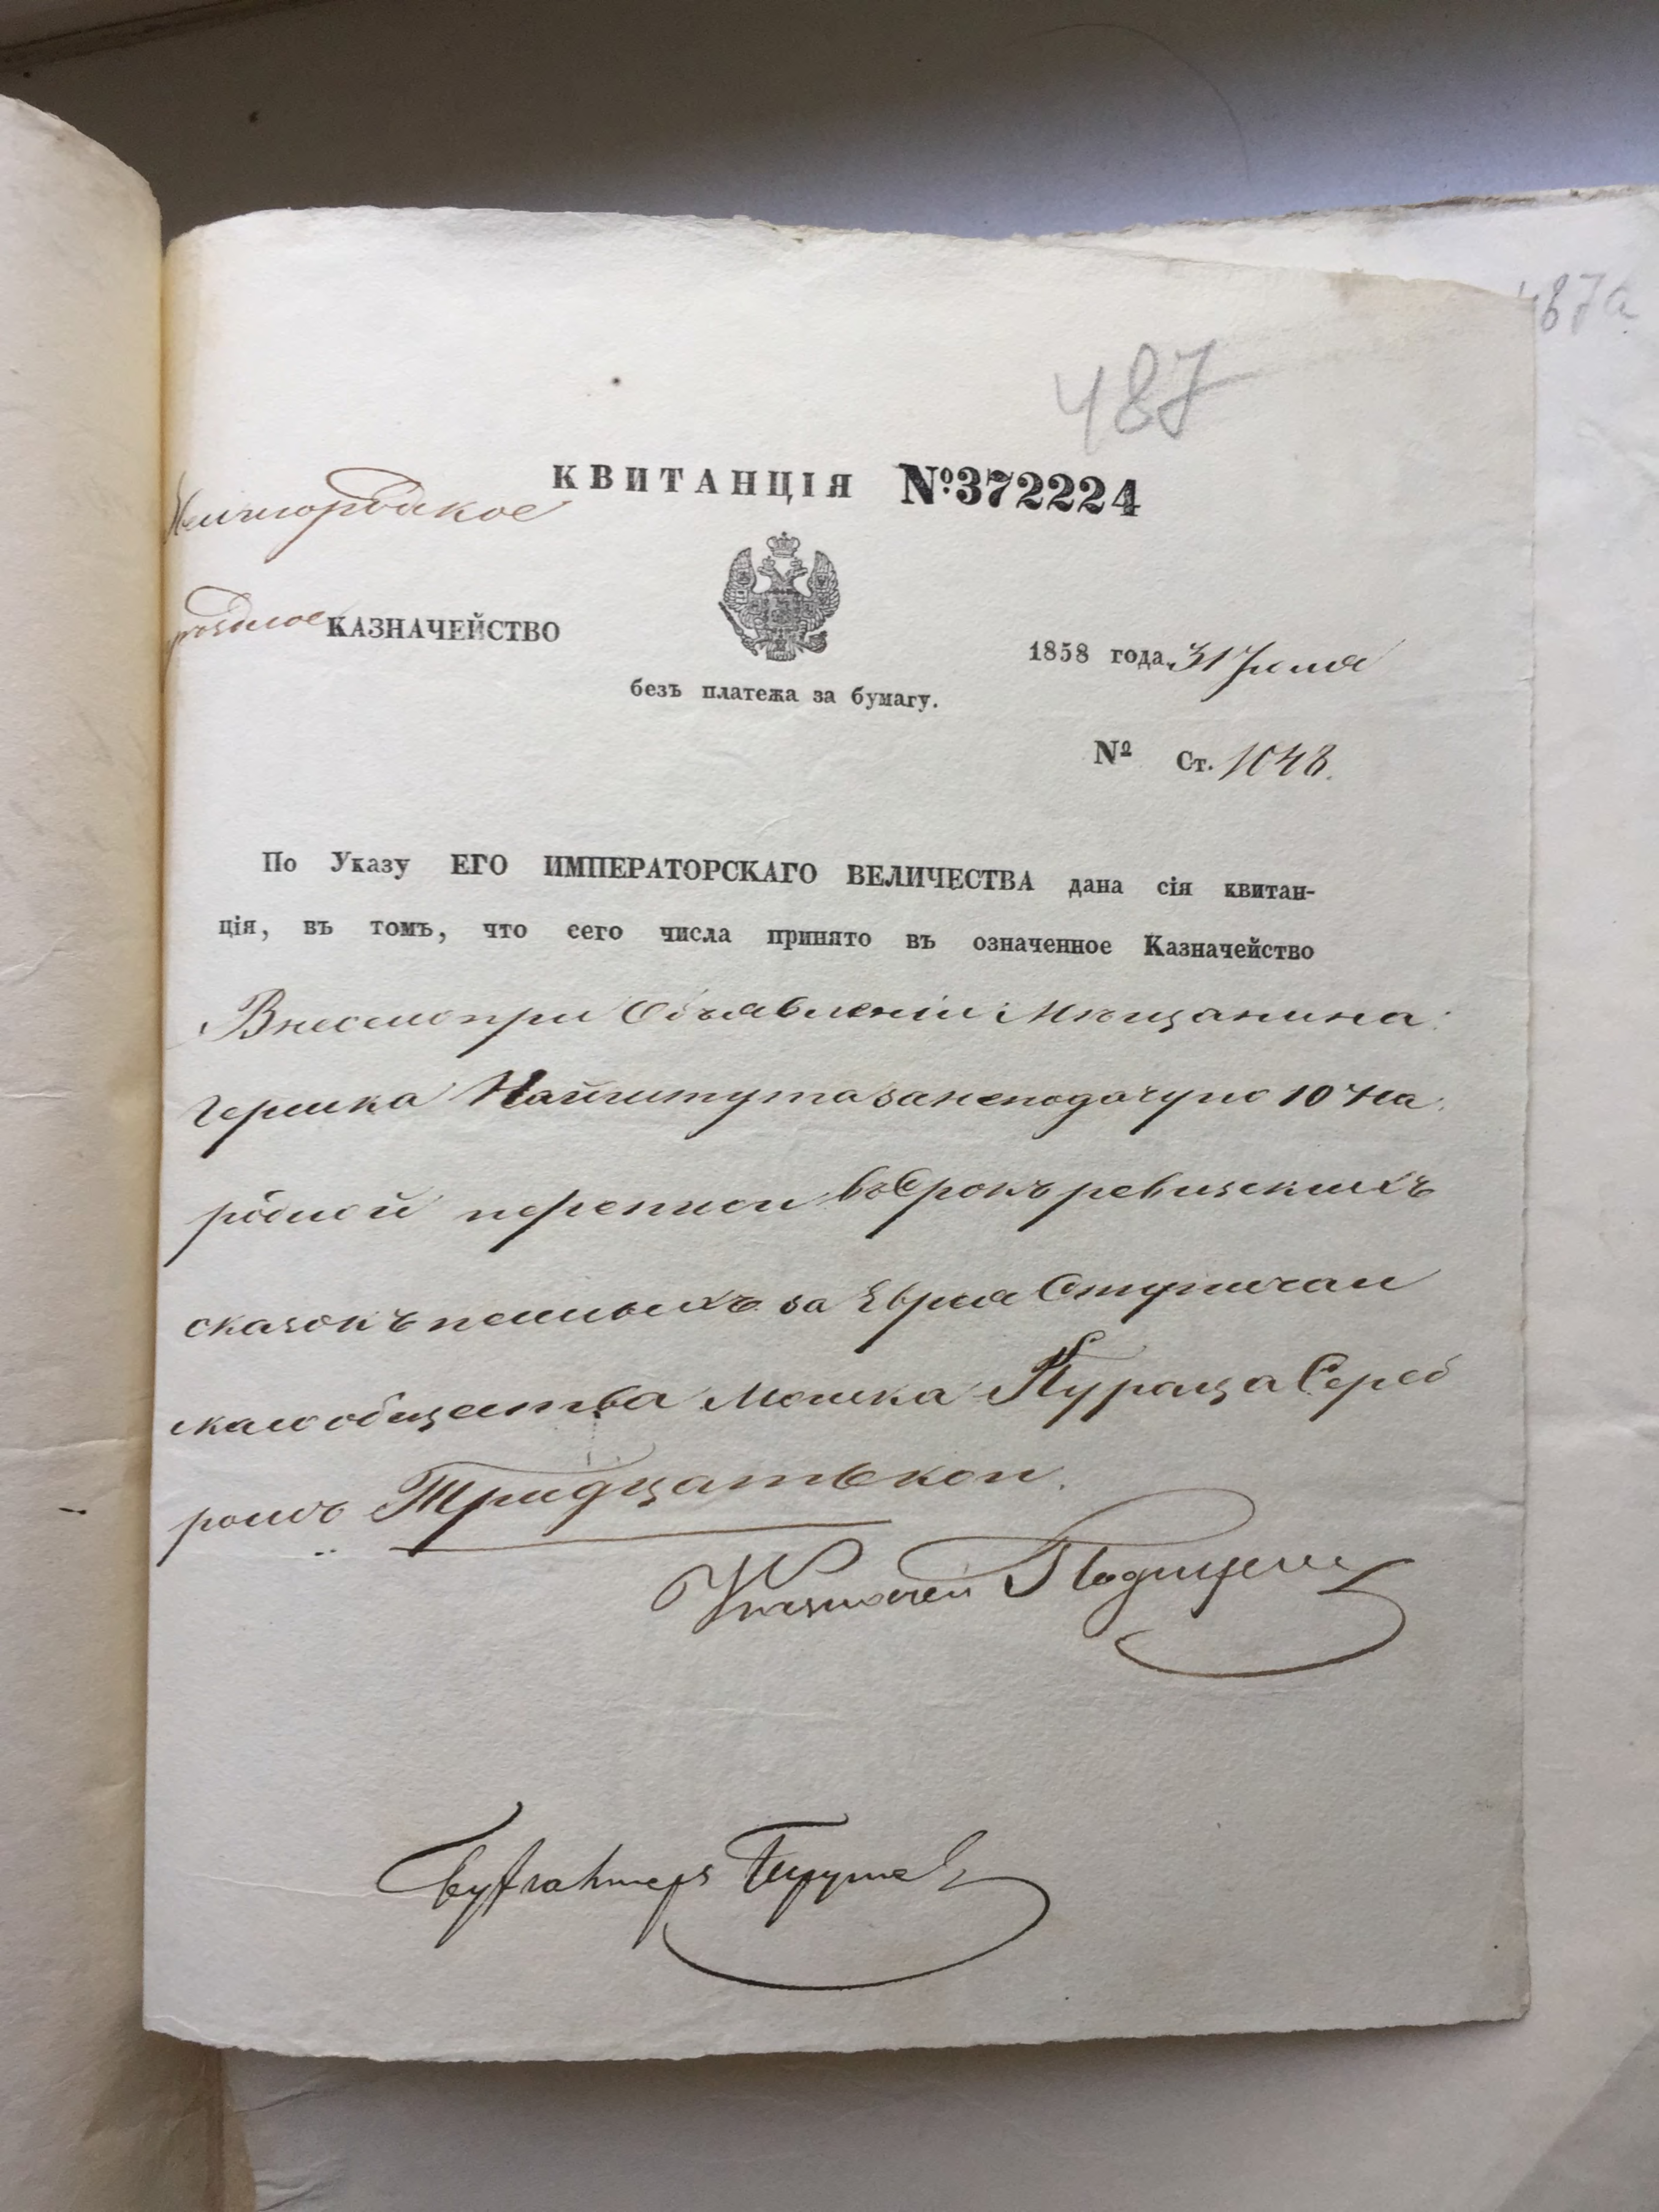 487а
487
КВИТАНЦІЯ №372224
Звенигородское
уѣздное КАЗНАЧЕЙСТВО
1858 года 31 Іюля
безъ платежа за бумагу.
№ Ст. 1048.
По Указу ЕГО ИМПЕРАТОРСКАГО ВЕЛИЧЕСТВА дана сія квитан-
ція, въ томъ, что сего числа принято въ означенное Казначейство
Внесено при Объявленіи Мѣщанина
Гершка за неподачу по 10 На
родной переписи въ Срокъ ревизскихъ
сказокъ пенныхъ за Еврея
скаго общества Мошка Сереб
ромъ Тридцать коп.
Казначей
Бухгалтеръ